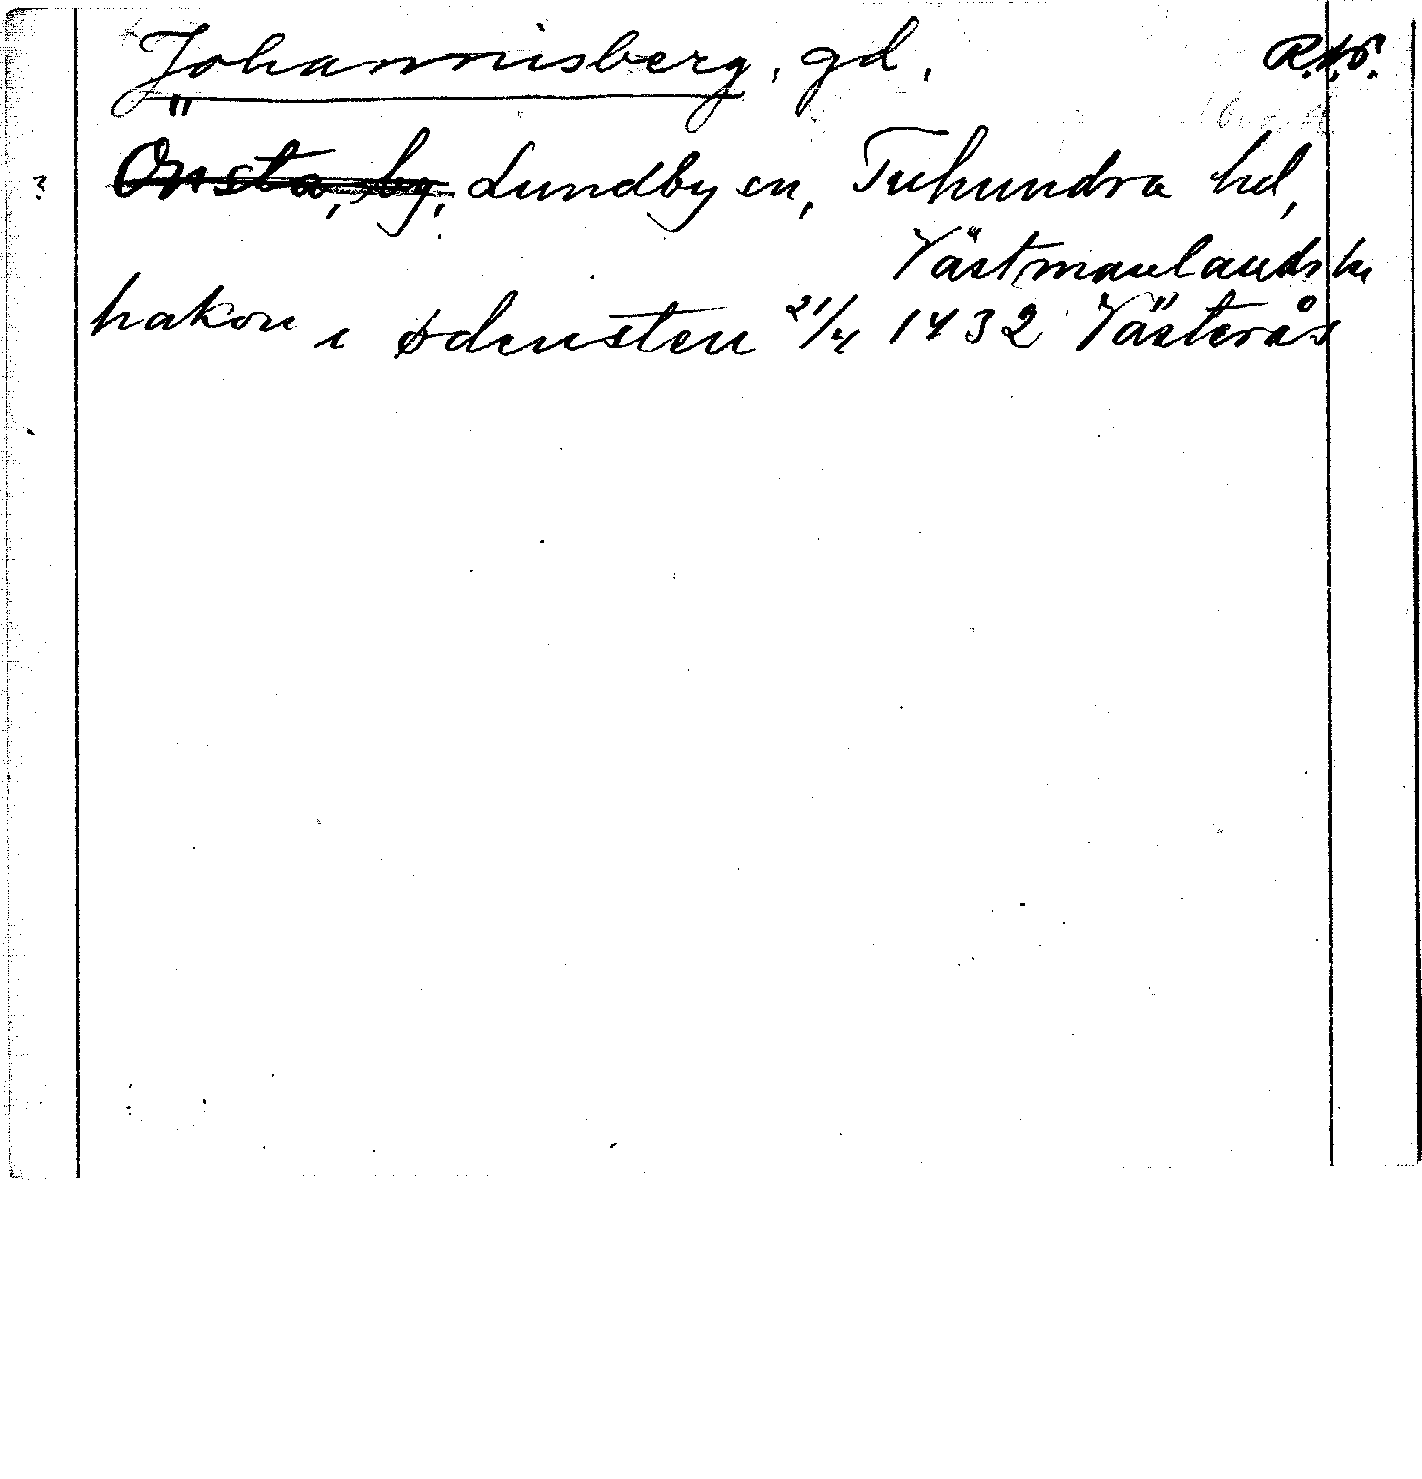 Johannisberg, gd. R.A.P.
Önsta, by, Lundby sn, Tuhundra hd,
Västmanlands län
hakon i ødensten 21/4 1432 Västerås